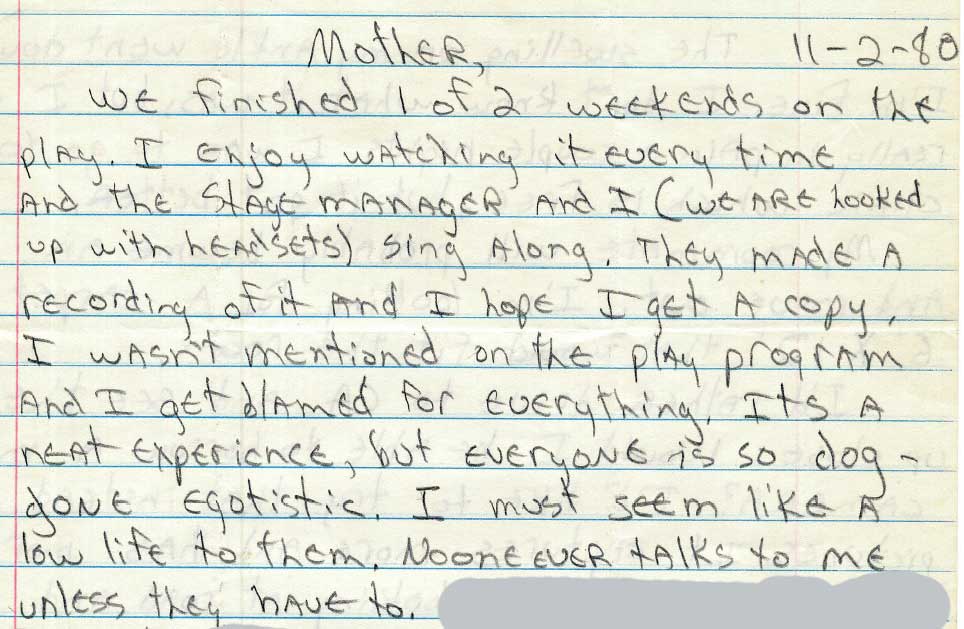 Mother, 11-2-80
We finished 1 of 2 weekends on the
play. I enjoy watching it every time
and the stage manager and I (we are hooked
up with headsets) sing along. They made a
recording of it and I hope I get a copy.
I wasn't mentioned on the play program
and I get blamed for everything. Its a
neat experience, but everyone is so dog-
gone egotistic. I must seem like a
low life to them. Noone ever talks to me
unless they have to.